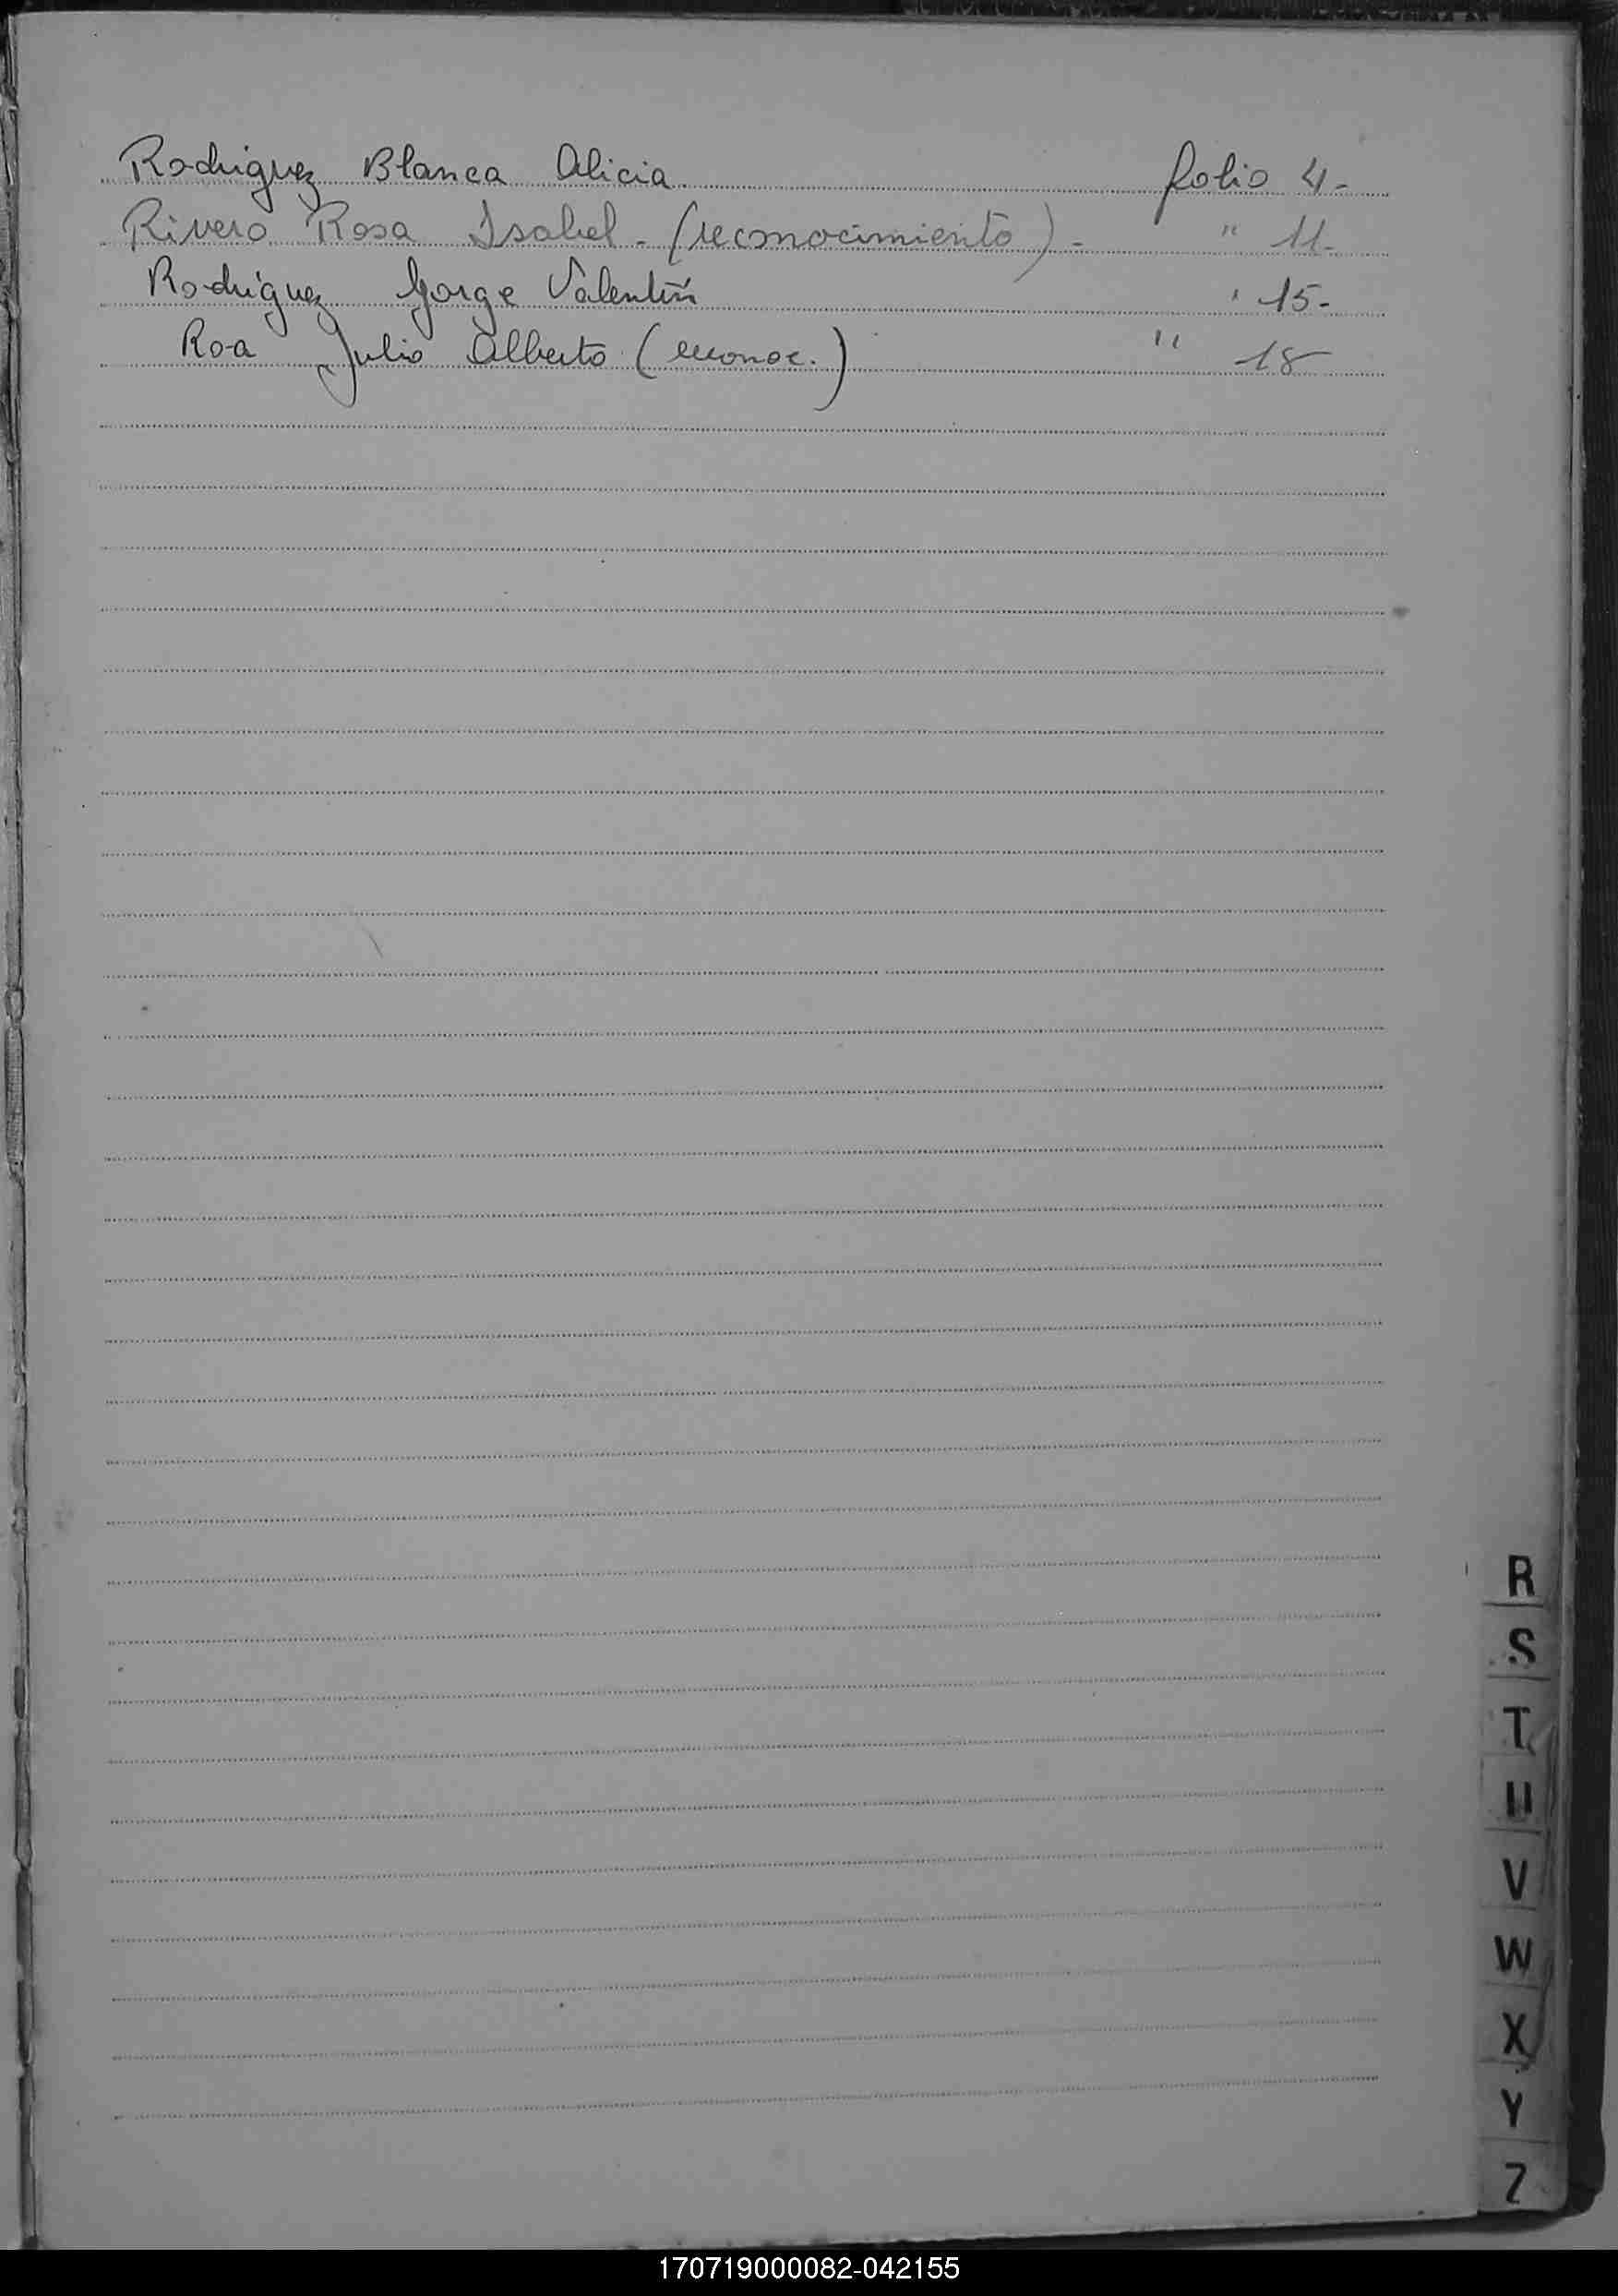 Rodriguez Blanca Alicia folio 4-
Rivero Rosa Isabel - (reconocimiento) - " 11-
Rodriguez Jorge Valentín " 15-
Roa Julio Alberto (reconoc.) " 18
R
S
T
U
V
W
X
Y
Z
170719000082-042155